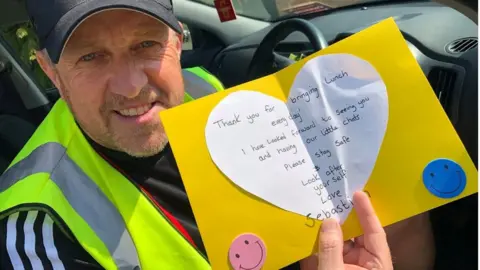 Thank you for bringing Lunch
every day!
I have looked forward to seeing you
and having our little chats
Please stay safe
Look after
your self!
Love
Sebast